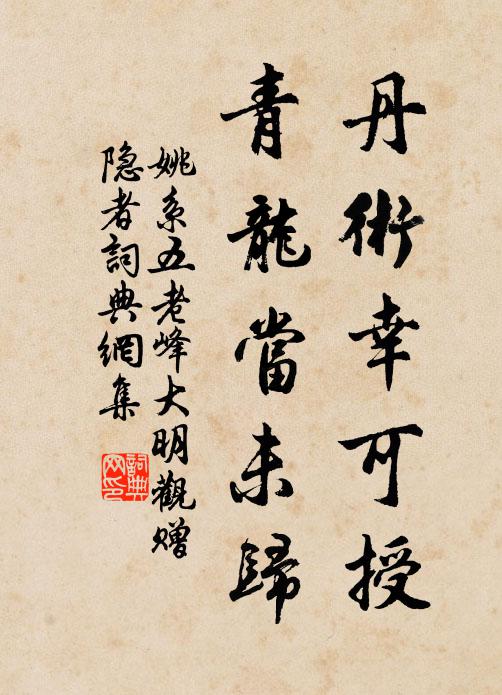 丹術幸可授
青龍當未歸
姚系五老峰大明觀贈
隐者詞典網集
詞典网印